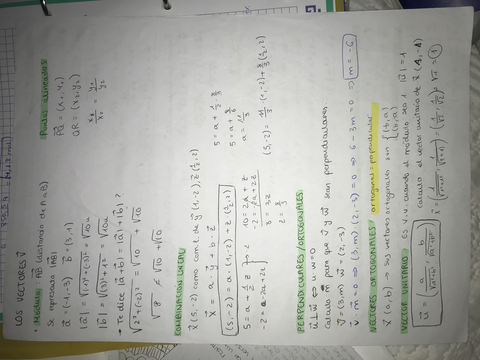 LOS VECTORES V⃗
• Módulo: AB⃗ (restando de A a B)
Se representa |AB⃗|
a⃗ = (-1,-3) b⃗ = (3,1)
|a⃗| = √(-1)²+(-3)² = √10 u
|b⃗| = √(3)²+1² = √10 u
• Te dice |a⃗+b⃗| = |a⃗|+|b⃗| ?
√2²+(-2)² = √10 + √10
√8 ≠ √10 + √10
Puntos alineados
PQ⃗ = (x₁,y₁)
QR⃗ = (x₂,y₂)
COMBINACIÓN LINEAL
x⃗ (5,-2) como comb. de y⃗ (1,-2), z⃗ (½,2)
x⃗ = a · y⃗ + b · z⃗
(5,-2) = a · (1,-2) + z (½,2)
5 = a + ½ z
-2 = -2a + 2z
10 = 2a + z
-2 = -2a + 2z
8 = 3z
z = 8/3
5 = a + ½ · 8/3
5 = a + 8/6
a = 11/3
(5,-2) = 11/3 (1,-2) + 8/3 (½,2)
PERPENDICULARES / ORTOGONALES
u⃗ ⊥ w⃗ ⇔ u · w = 0
Calcula m para que v⃗ y w⃗ sean perpendiculares
v⃗ = (3,m) w⃗ = (2,-3)
v⃗ · w⃗ = 0 ⇒ (3,m) (2,-3) = 0 ⇒ 6 - 3m = 0 ⇒ m = -6
VECTORES ORTOGONALES ortogonal = perpendicular
x⃗ (a,b) → sus vectores ortogonales son (-b,a) (b,-a)
VECTOR UNITARIO Es v.u. cuando el módulo sea 1 |u⃗| = 1
Calcula el vector unitario de x⃗ (1,-1)